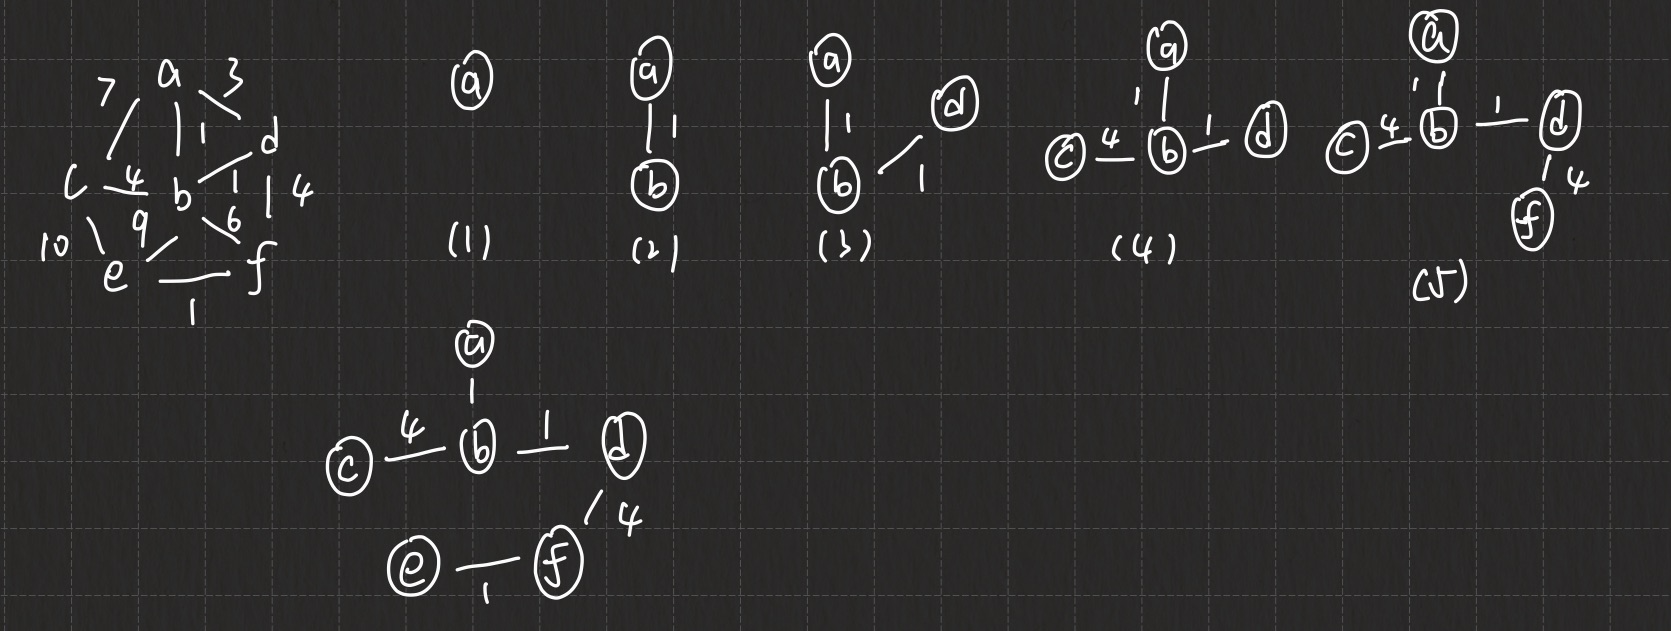 7 a 3
1 d
c 4 b 1 4
10 9 6
e f
1
a
(1)
a
1
b
(2)
a
d
1
b
1
(3)
a
1
c 4 b 1 d
(4)
a
1
c 4 b 1 d
4
f
(5)
a
c 4 b 1 d
4
e f
1